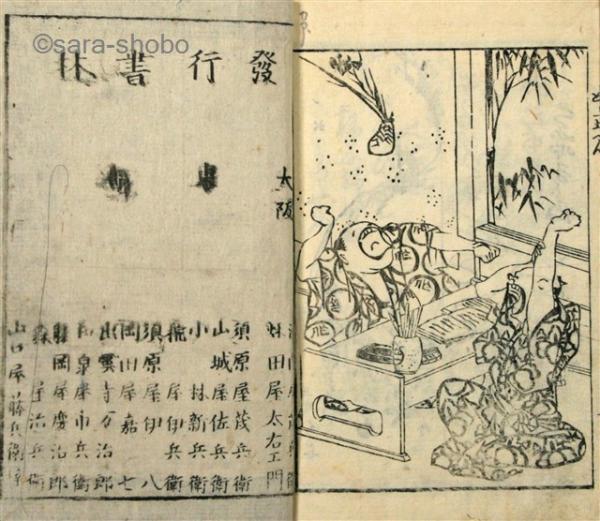 ©sara-shobo
發行書林
大阪
田屋太右エ門
須原屋茂兵衛
山城屋佐兵衛
小林新兵衛
屋伊兵衛
須原屋伊八
岡田屋嘉七
出雲寺万治郎
和泉屋市兵衛
岡屋慶治郎
森屋治兵衛
山口屋藤兵衛